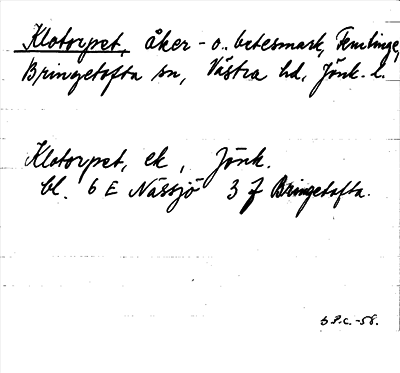 Klotorpet, åker- o. betesmark, Femlinge,
Bringetofta sn, Västra hd, Jönk. l.
Klotorpet, ek, Jönk.
bl. 6 E Nässjö 3 f Bringetofta.